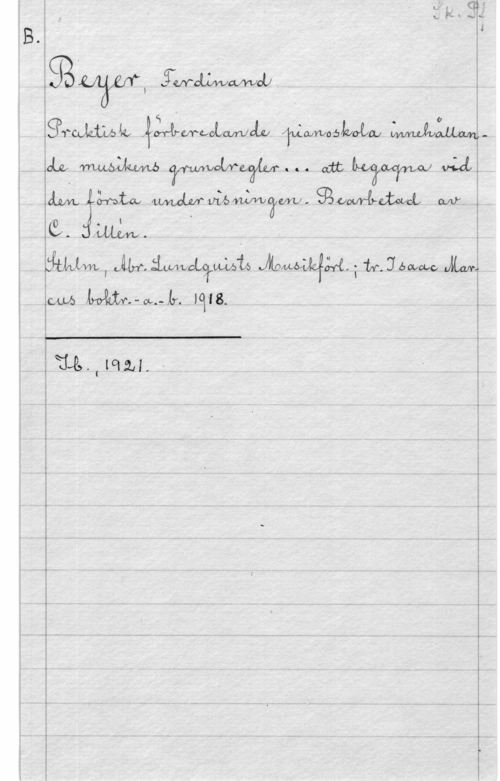 Sk. Pf
B.
Beyer, Ferdinand
Praktisk förberedande pianoskola innehållan-
de musikens grundregler... att begagna vid
den första undervisningen. Bearbetad av
C. Tillén.
Sthlm, Abr. Lundquists Musikförl.; tr. Isaac Mar-
cus boktr.-a.-b. 1918.
Ib., 1921.